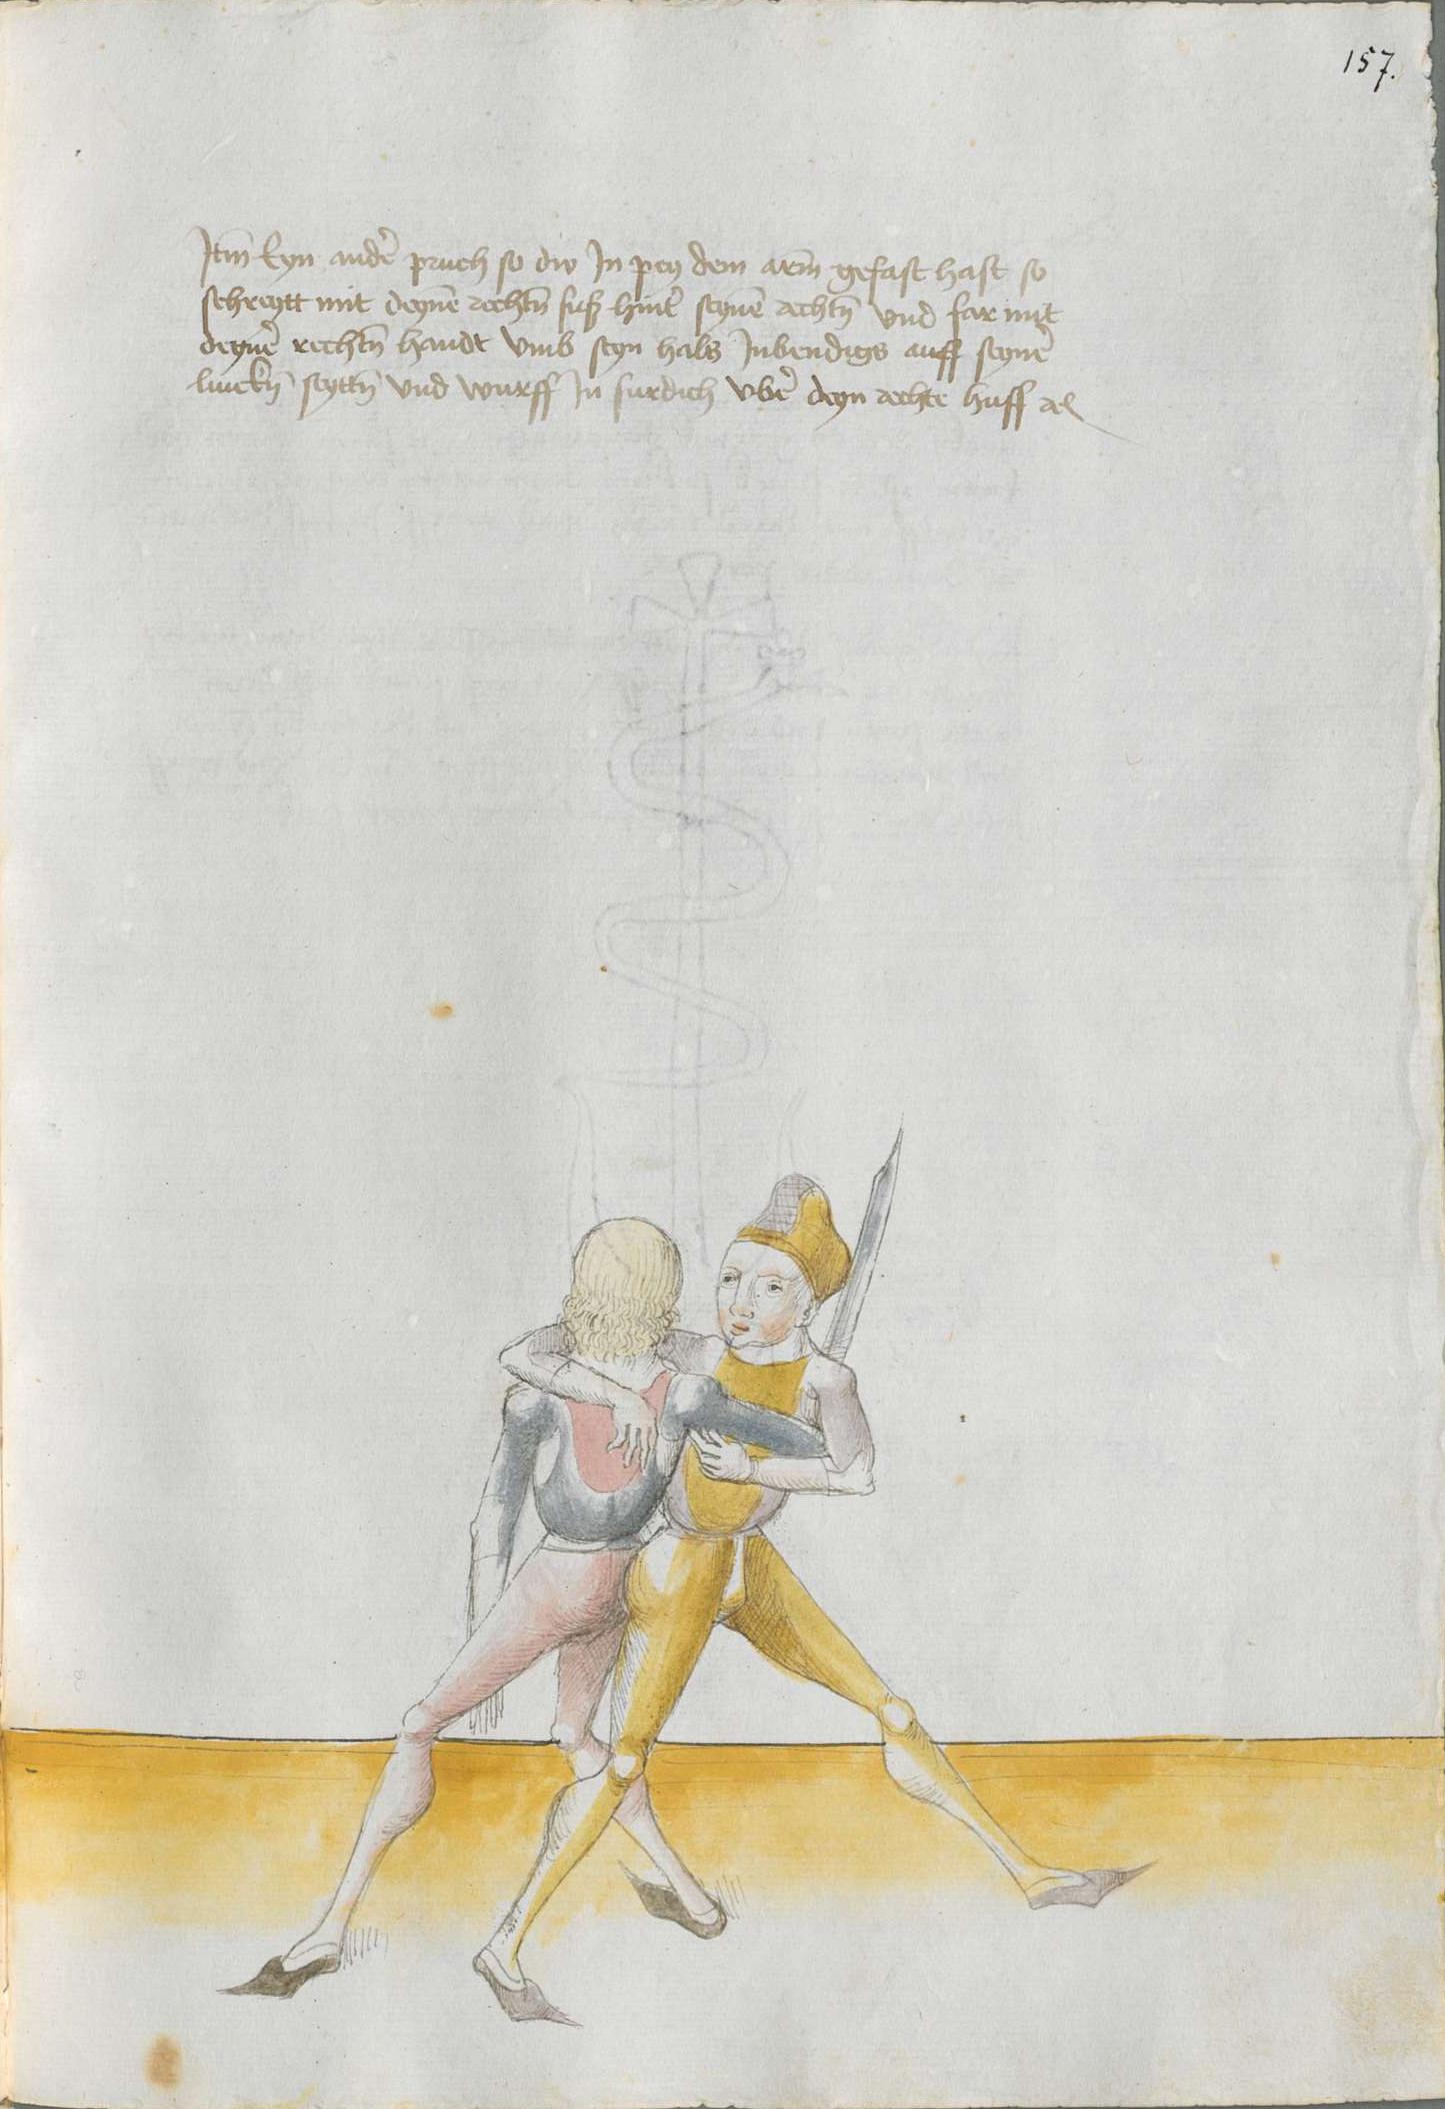 157.
Itm̄ Eyn ander̄ pruch so dw Jn pey dem arm̄ gefast hast so
schreytt mit deynē rechtn̄ fuß hintr̄ seynē rechtn̄ vnd far mit
deyner̄ rechtn̄ handt vmb seyn hals Jnbendigs auff seyner̄
linckn̄ seyttn̄ vnd wurff Jn furdich vber̄ deyn rechte huff